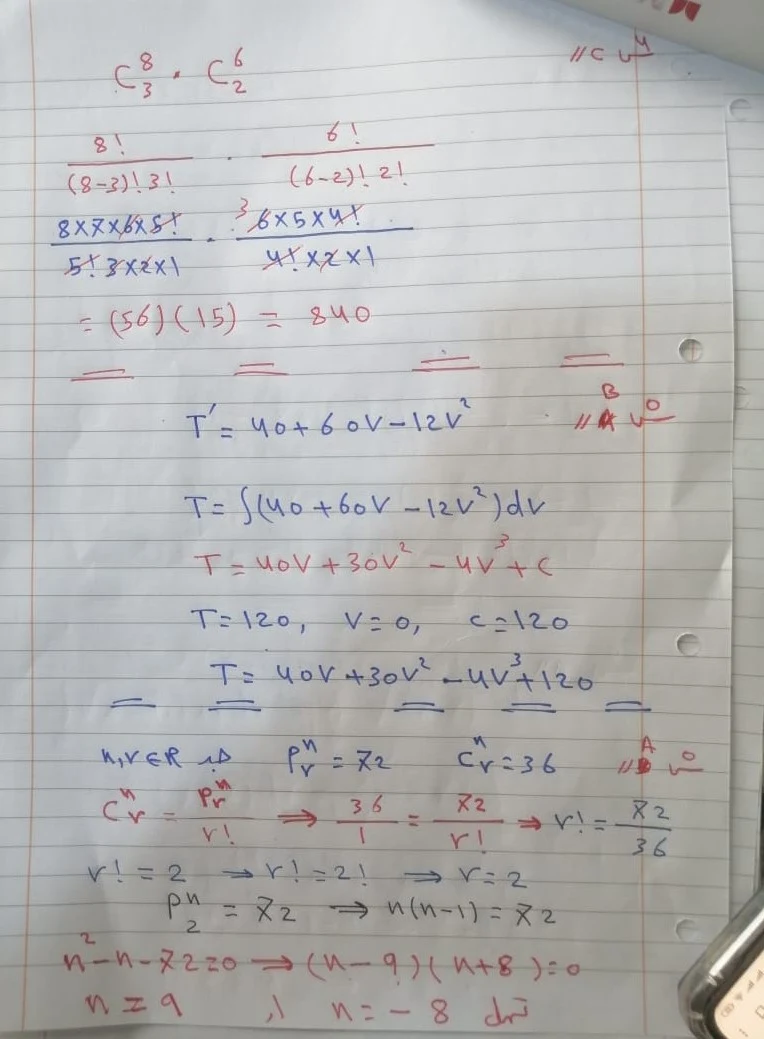 س4 C//
C⁸₃ · C⁶₂
8! / (8-3)! 3! · 6! / (6-2)! 2!
8×7×6×5! / 5! 3×2×1 · 3 6×5×4! / 4!×2×1
= (56)(15) = 840
س5 B//
T' = 40+60V-12V²
T = ∫(40+60V-12V²)dV
T = 40V+30V²-4V³+C
T=120, V=0, C=120
T = 40V+30V²-4V³+120
س5 A//
n,r∈R جد Pⁿᵣ = 72 Cⁿᵣ = 36
Cⁿᵣ = Pⁿᵣ / r! ⇒ 36/1 = 72/r! → r! = 72/36
r! = 2 → r! = 2! → r = 2
Pⁿ₂ = 72 → n(n-1) = 72
n²-n-72=0 → (n-9)(n+8)=0
n = 9 أو n = -8 تهمل